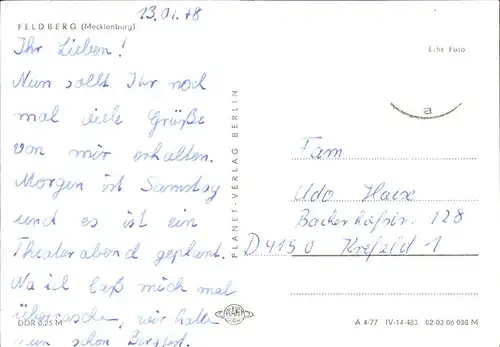 13.01.78
FELDBERG (Mecklenburg)
Ihr Lieben!
Nun sollt Ihr noch
mal viele Grüße
von mir erhalten.
Morgen ist Samstag
und es ist ein
Theaterabend geplant.
Na ich laß mich mal
überraschen, wir halten
nun schon Bergfest.
DDR 0,25 M
PLANET-VERLAG BERLIN
PLANET
Echt Foto
a
Fam
Udo
128
D 4150 Krefeld 1
A 4/77 IV-14-483 02 03 06 088 M